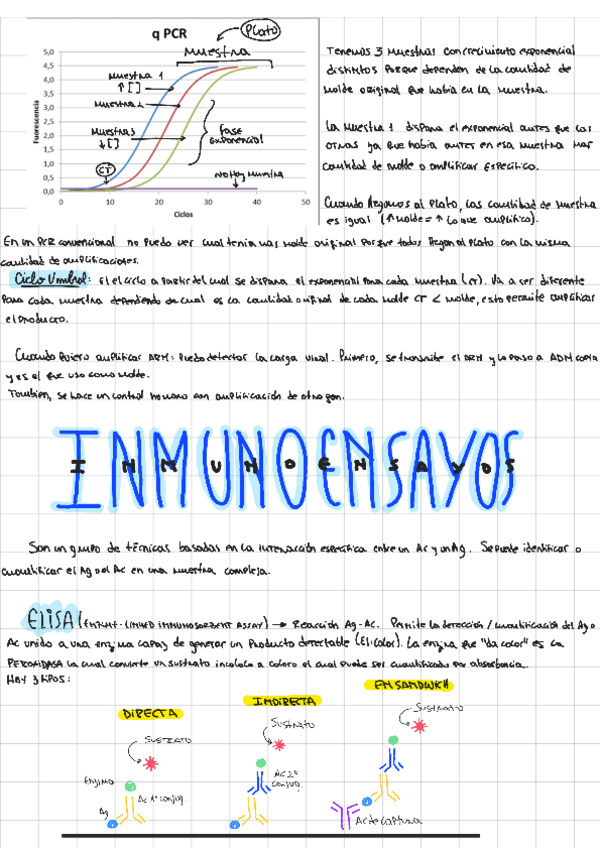 q PCR
Plato
muestra
5,0
4,5
4,0
3,5
3,0
2,5
2,0
1,5
1,0
0,5
0,0
Fluorescencia
muestra 1
↑[ ]
muestra 2
muestra 3
↓[ ]
fase
exponencial
CT
No Hay muestra
0 10 20 30 40 50
Ciclos
Tenemos 3 muestras con crecimiento exponencial
distintos porque dependen de la cantidad de
molde original que había en la muestra.
La muestra 1 dispara el exponencial antes que las
otras ya que había antes en esa muestra mas
cantidad de molde o amplificar específico.
Cuando llegamos al plato, las cantidad de muestra
es igual (↑ molde = ↑ lo que amplifico).
En un PCR convencional no puedo ver cual tenia mas molde original porque todos llegan al plato con la misma
cantidad de amplificaciones.
Ciclo Umbral: El el ciclo a partir del cual se dispara el exponencial para cada muestra (CT). Va a ser diferente
para cada muestra dependiendo de cual es la cantidad original de cada molde CT < molde, esto permite amplificar
el producto.
Cuando quiero amplificar ARN: puedo detectar la carga viral. Primero, se transmite el ARN y lo paso a ADN copia
y es el que uso como molde.
Tambien, se hace un control humano con amplificación de otro gen.
INMUNOENSAYOS
INMUNOENSAYOS
Son un grupo de técnicas basadas en la interacción especifica entre un Ac y un Ag. Se puede identificar o
cuantificar el Ag o el Ac en una muestra compleja.
ELISA (ENZYME-LINKED IMMUNOSORBENT ASSAY) → Reacción Ag-Ac. Permite la detección / cuantificación del Ag o
Ac unido a una enzima capaz de generar un producto detectable (El: color). La enzima que "da color" es la
PEROXIDASA la cual convierte un sustrato incoloro a coloro el cual puede ser cuantificado por absorbancia.
HAY 3 TIPOS:
DIRECTA
INDIRECTA
EN SANDWICH
SUSTRATO
Sustrato
Sustrato
Enzima
Ac 1º conjug.
Ag
AC 2º
conjug.
Ac de captura